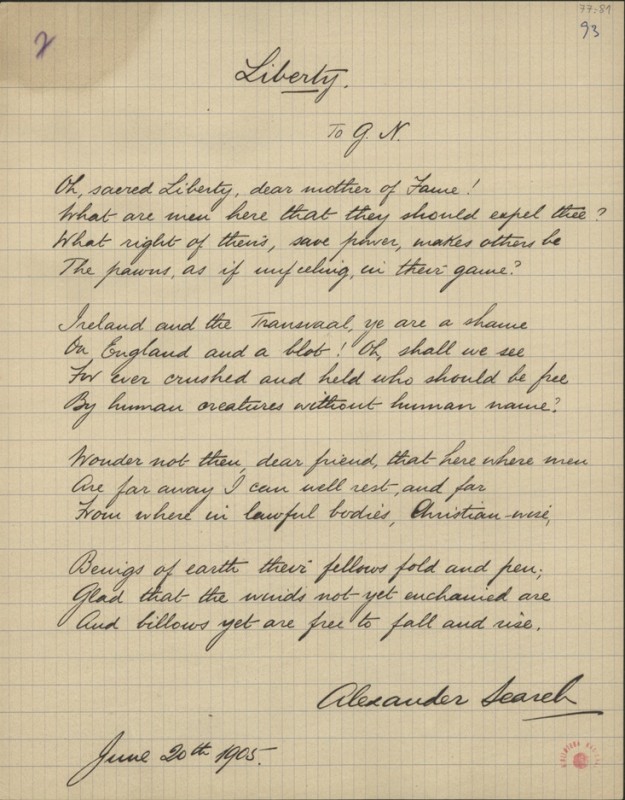 77-81
93
2
Liberty.
To G. N.
Oh, sacred Liberty, dear mother of Fame!
What are men here that they should expel thee?
What right of theirs, save power, makes others be
The pawns, as if unfeeling, in their game?
Ireland and the Transvaal, ye are a shame
On England and a blot! Oh, shall we see
For ever crushed and held who should be free
By human creatures without human name?
Wonder not then, dear friend, that here where men
Are far away I can well rest, and far
From where in lawful bodies, Christian-wise,
Beings of earth their fellows fold and pen;
Glad that the winds not yet enchained are
And billows yet are free to fall and rise.
Alexander Search
June 20th 1905.